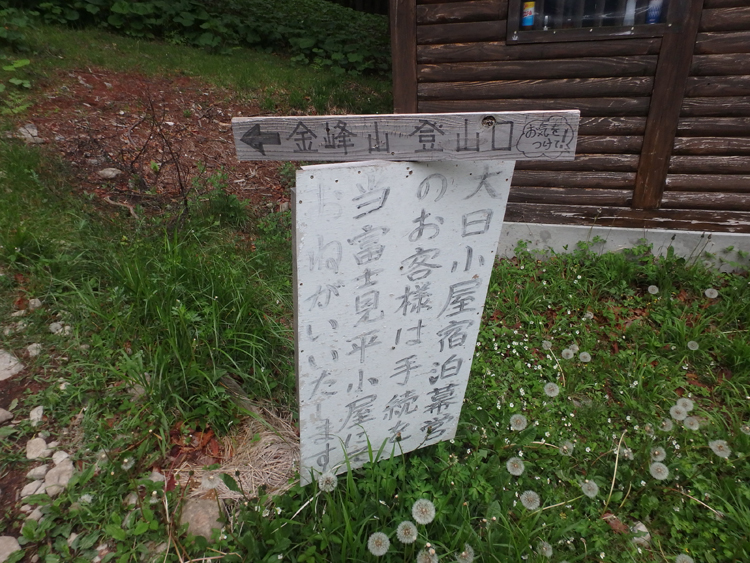 金峰山登山口
お気を
つけて!
大日小屋宿泊幕営
のお客様は手続を
当富士見平小屋にて
おねがいいたします